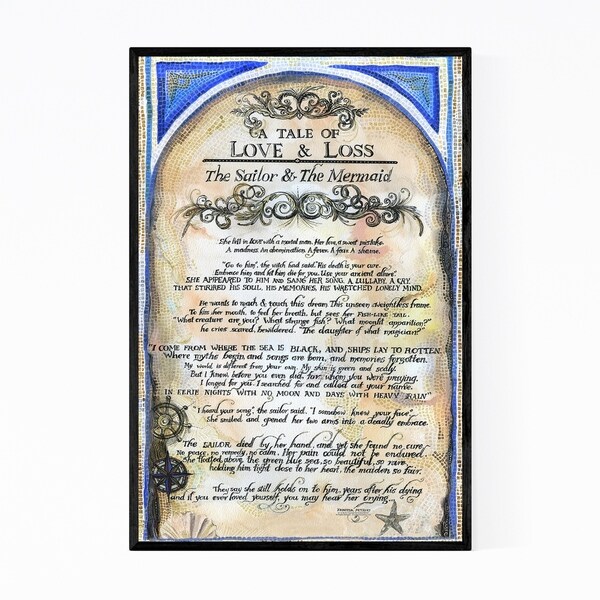 A TALE OF
LOVE & LOSS
The Sailor & The Mermaid
She fell in love with a mortal man. Her love, a sweet mistake.
A madness. An abomination. A fever. A fear. A shame.
"Go to him", the witch had said. "His death is your cure.
Embrace him and let him die for you. Use your ancient allure".
SHE APPEARED TO HIM AND SANG HER SONG. A LULLABY, A CRY.
THAT STIRRED HIS SOUL, HIS MEMORIES, HIS WRETCHED LONELY MIND.
He wants to reach & touch this dream. This unseen, weightless frame.
To kiss her mouth, to feel her breath, but sees her FISH-LIKE TAIL.
"What creature are you? What strange fish? What moonlit apparition?"
he cries scared, bewildered. "The daughter of what magician?"
"I COME FROM WHERE THE SEA IS BLACK, AND SHIPS LAY TO ROTTEN.
Where myths begin and songs are born, and memories forgotten.
My world is different from your own. My skin is green and scaly.
But I knew, before you even did, for whom you were praying.
I longed for you. I searched for and called out your name.
IN EERIE NIGHTS WITH NO MOON AND DAYS WITH HEAVY RAIN"
"I heard your song", the sailor said. "I somehow knew your face".
She smiled and opened her two arms into a deadly embrace.
The SAILOR died by her hand, and yet she found no cure.
No peace, no remedy, no calm. Her pain could not be endured.
She floated above the green blue sea, so beautiful, so rare
holding him tight close to her heart, the maiden so fair.
They say she still holds on to him, years after his dying
and if you ever loved yourself, you may hear her crying...